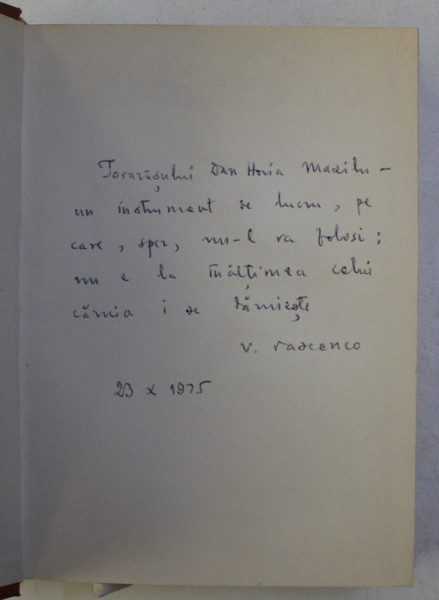 Tovarășului Dan Horia Mazilu –
un instrument de lucru, pe
care, sper, nu-l va folosi:
nu e la înălțimea celui
căruia i se dăruiește
V. Vascenco
23 X 1975